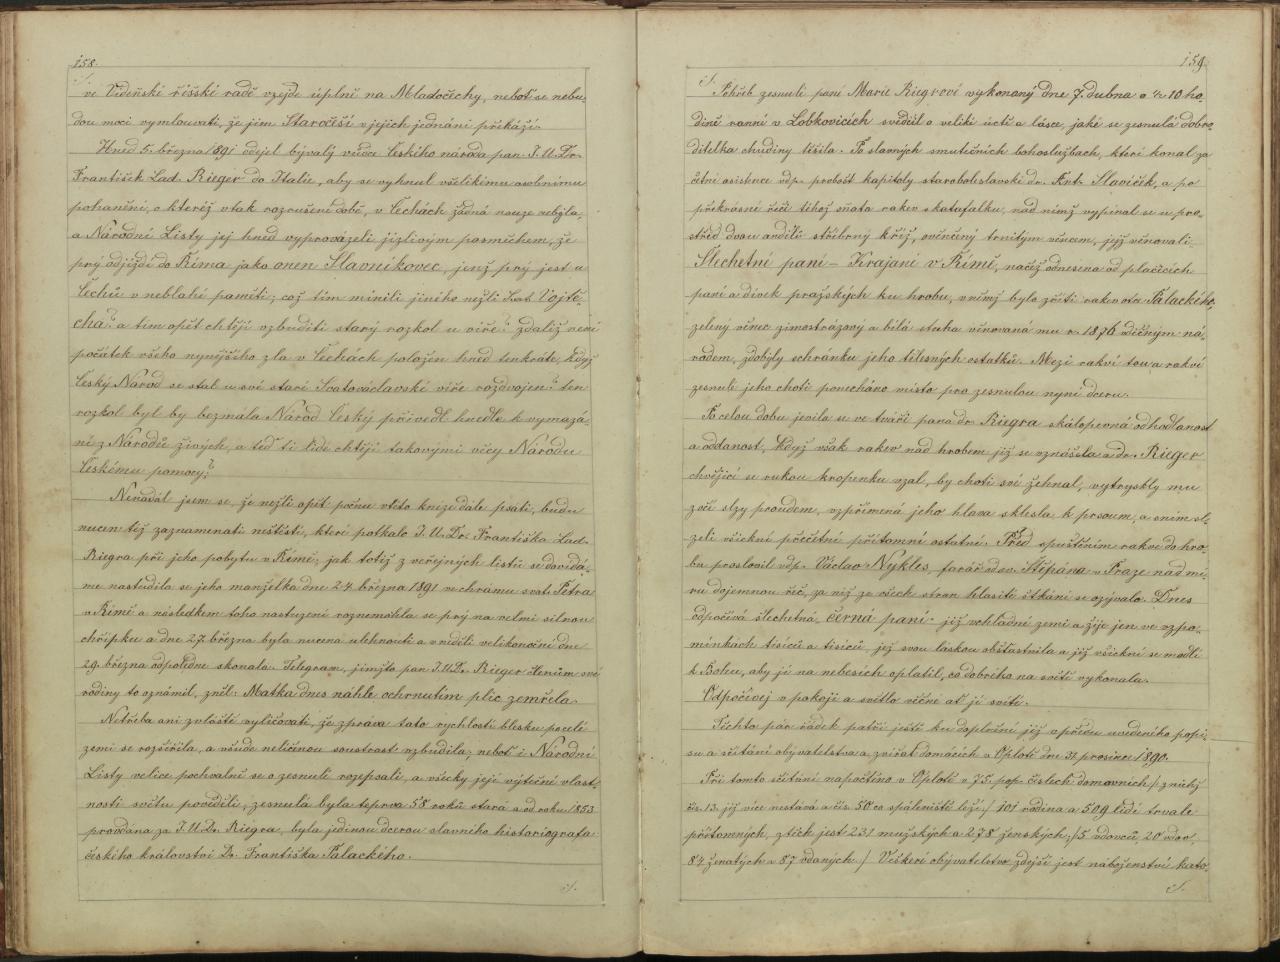 158.
ve Vídeňské říšské radě vzejde úplně na Mladočechy, neboť se nebu-
dou moci vymlouvati, že jim Staročeši v jejich jednání překáží.
Hned 5. března 1891 odejel bývalý vůdce českého národa pan J.U.Dr.
František Lad. Rieger do Italie, aby se vyhnul všelikému osobnímu
pohanění, o kteréž v tak rozrušené době, v Čechách žádná nouze nebyla,
a Národní Listy jej hned vyprovázeli jízlivým posměchem, že
prý odjíždí do Říma jako onen Slavníkovec, jenž prý jest u
Čechů v neblahé paměti; což tím mínili jiného nežli Svat. Vojtě-
cha? a tím opět chtějí vzbuditi starý rozkol u víře? zdaliž není
počátek všeho nynějšího zla v Čechách položen hned tenkráte, když
Český Národ se stal u své staré Svatováclavské víře rozdvojen? ten
rozkol byl by bezmála Národ Český přivedl hnedle k vymazá-
ní z Národů živých, a teď ti lidé chtějí takovými věcy Národu
Českému pomocy?
Nenadál jsem se, že nežli opět počnu v této knize dále psáti, budu
nucen též zaznamenati neštěstí, které potkalo J.U.Dr. Františka Lad.
Riegra při jeho pobytu v Římě; jak totiž z veřejných listů se dovídá-
me nastudila se jeho manželka dne 24. března 1891 ve chrámu svat. Petra
v Římě a následkem toho nastuzení roznemohla se prý na velmi silnou
chřipku a dne 27. března byla nucena ulehnouti a v neděli velikonoční dne
29. března odpoledne skonala. Telegram, jímžto pan J.U.Dr. Rieger členům své
rodiny to oznámil, zněl: Matka dnes náhle ochrnutím plic zemřela.
Netřeba ani zvláště vyličovati, že zpráva tato rychlostí blesku po celé
zemi se rozšířila, a všude neličenou soustrast vzbudila; neboť i Národní
Listy velice pochvalně se o zesnulé rozepsali, a všecky její výtečné vlast-
nosti světu pověděli; zesnulá byla teprva 58 roků stará a od roku 1853
provdána za J.U.Dr. Riegra, byla jedinou dcerou slavného historiografa
českého království Dr. Františka Palackého.
159.
Pohřeb zesnulé paní Marie Riegrové vykonaný dne 7. dubna o ½ 10 ho-
dině ranní v Lobkovicích svědčil o veliké úctě a lásce, jaké se zesnulá dobro-
ditelka chudiny těšila. Po slavných smutečních bohoslužbách, které konal za
četné asistence vdp. probošt kapitoly staroboleslavské dr. Ant. Slavíček, a po
překrásné řeči téhož sňata rakev s katafalku, nad nímž vypínal se u pro-
střed dvou andělů stříbrný kříž, ověnčený trnitým věncem, jejž věnovali.
Šlechetné paní – Krajané v Římě, načež odnesena od plačících
paní a dívek pražských ku hrobu, v němž bylo zříti rakev otce Palackého,
zelený věnec zimostrázový a bílá stuha věnovaná mu r. 1876 vděčným ná-
rodem, zdobyly schránku jeho tělesných ostatků. Mezi rakví tou a rakví
zesnulé jeho choti ponecháno místo pro zesnulou nyní dceru.
Po celou dobu jevila se ve tváři pana dr. Riegra skálopevná odhodlanost
a oddanost, když však rakev nad hrobem již se vznášela a dr. Rieger
chvějící se rukou kropenku vzal, by choti své žehnal, vytryskly mu
z očí slzy proudem, vzpřímená jeho hlava sklesla k prsoum, a s ním sl-
zeli všickni přečetní přítomní ostatní. Před spuštěním rakve do hro-
bu proslovil vdp. Václav Nykles, farář od sv. Štěpána v Praze nad mí-
ru dojemnou řeč, za níž ze všech stran hlasité štkání se ozývalo. Dnes
odpočívá šlechetná, černá paní již v chladné zemi a žije jen ve vzpo-
mínkách tisíců a tisíců, jež svou láskou obšťastnila a již všickni se modlí
k Bohu, aby jí na nebesích oplatil, co dobrého na světě vykonala.
Odpočívej v pokoji a světlo věčné ať jí svítí.
Těchto pár řádek patří ještě ku doplnění již v předu uvedeného popi-
su a sčítání obyvatelstva a zvířat domácích v Oplotí dne 31. prosince 1890.
Při tomto sčítání napočtíno v Oplotí v 75. pop. číslech domovních /: z nichž
čís. 13. již více nestává a čís. 50 co spáleniště leží :/ 101 rodina a 509 lidí trvale
přítomných, z těch jest 231 mužských a 278 ženských; /5 vdovců, 20 vdov,
84 ženatých a 87 vdaných./ Veškeré obyvatelstvo zdejší jest náboženství kato-